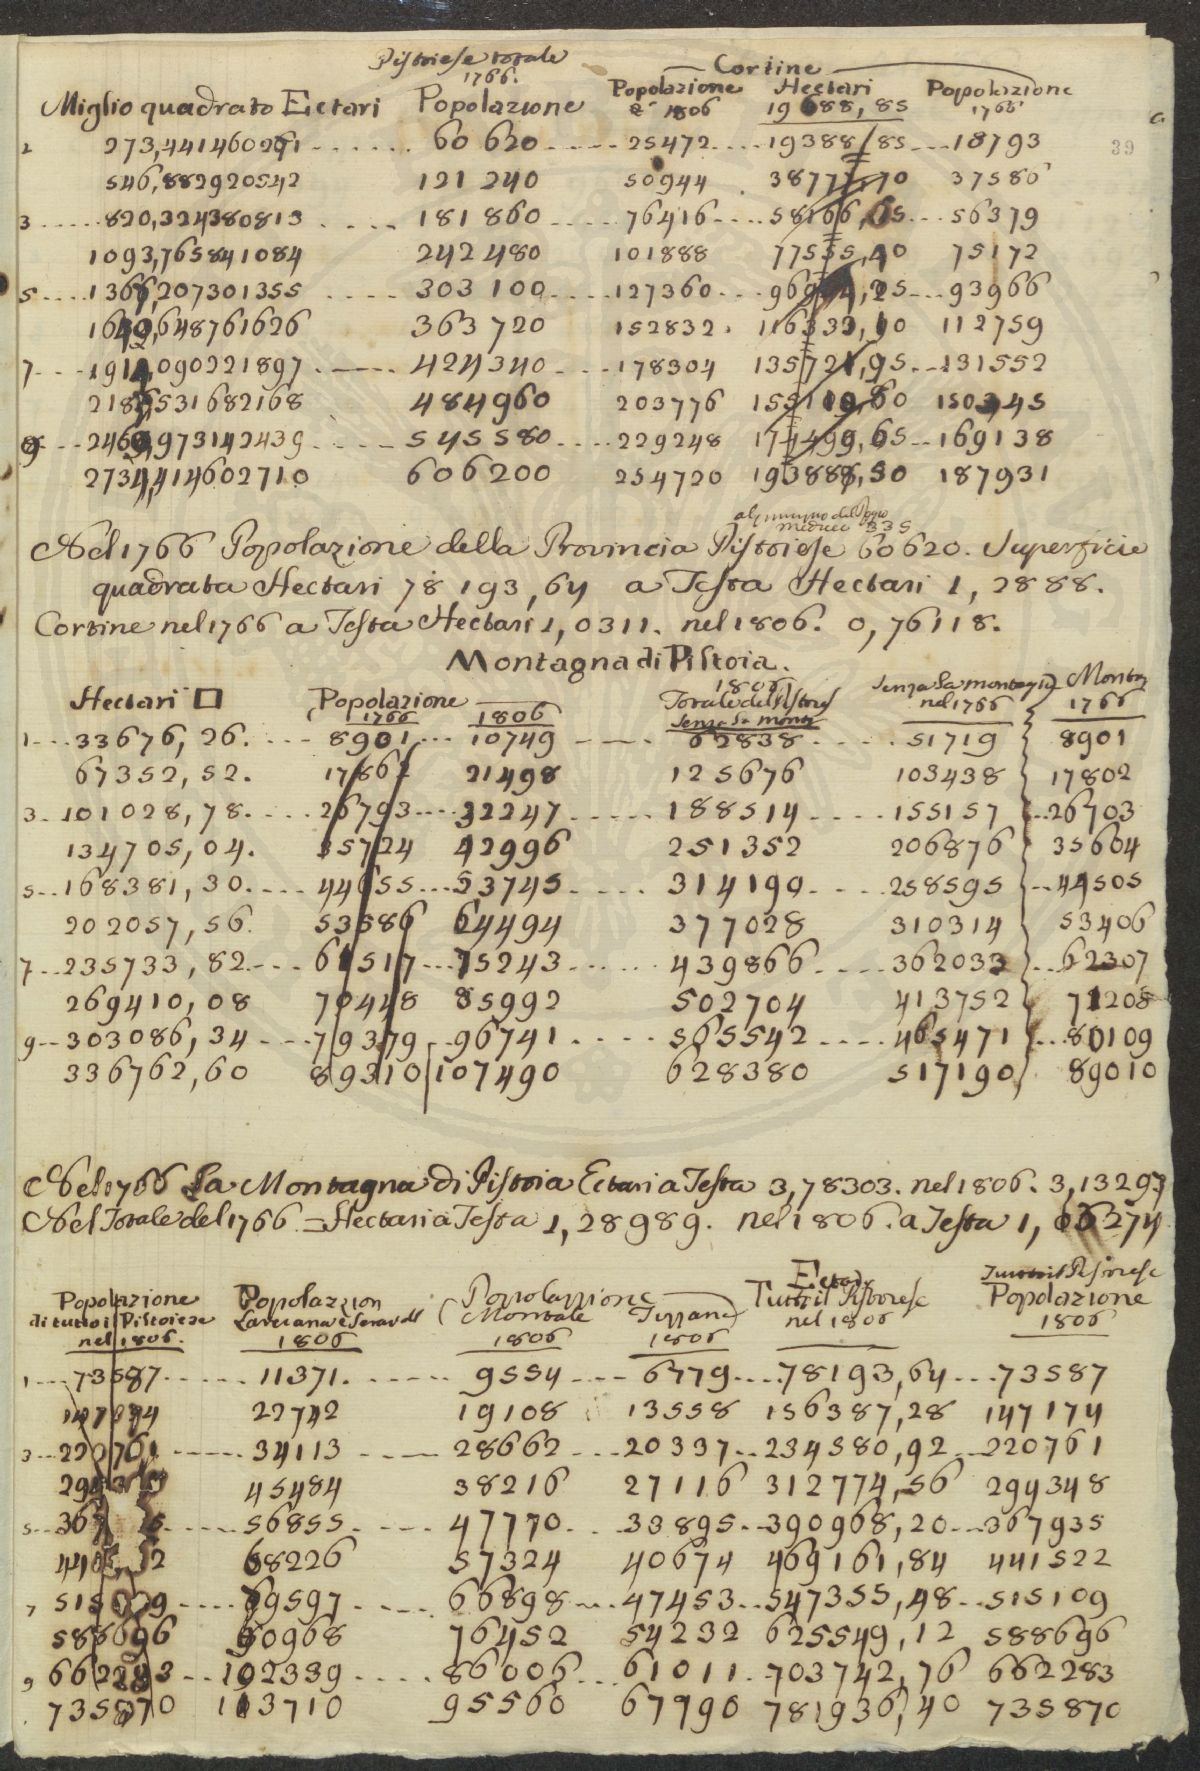 Pistoiese totale Cortine
1766. Popolazione Hectari Popolazione
Miglio quadrato Ectari Popolazione a 1806 19688,85 1766
39
2 273,441460271 ...... 60620 ..... 25472 .... 19388,85 ... 18793
546,882920542 121240 50944 38777,70 37586
3 ..... 820,324380813 .... 181860 ..... 76416 .... 58166,65 ... 56379
1093,765841084 242480 101888 77555,40 75172
5 .... 1366,207301355 ..... 303100 ..... 127360 ... 25 ... 93966
1640,648761626 363720 152832. 116333,10 112759
7 .... 1914,090221897 ..... 424340 .... 178304 135721,95 .. 131552
2187,531682168 484960 203776 155110,80 150345
9 .... 2460,973142439 ..... 545580 .... 229248 174499,65 .. 169138
2734,414602710 606200 254720 193888,50 187931
Nel 1766 Popolazione della Provincia Pistoiese 60620. Superficie
quadrata Hectari 78193,64 a Testa Hectari 1,2888.
Cortine nel 1766 a Testa Hectari 1,0311. nel 1806. 0,76118.
Montagna di Pistoia.
Hectari □ Popolazione 1806 Senza la montagna Montag
1766 1806 Totale del Pistoies nel 1766 1766
Senza la monta
1 ... 33676,26. .... 8901 ... 10749 ----- 62838 ..... 51719 8901
67352,52. 17862 21498 125676 103438 17802
3 .. 101028,78. .... 26793 .... 32247 ..... 188514 ..... 155157 .. 26703
134705,04. 35724 42996 251352 206876 35604
5 .. 168381,30. .... 44655 ... 53745 ..... 314190 ..... 258595 .. 44505
202057,56. 53586 64494 377028 310314 53406
7 .. 235733,82 .... 62517 ... 75243 ...... 439866 .... 362033 ... 62307
269410,08 70448 85992 502704 413752 71208
9 .. 303086,34 .... 79379 .. 96741 ..... 565542 ..... 465471 ... 80109
336762,60 89310 107490 628380 517190 89010
Nel 1766 La Montagna di Pistoia Ectari a Testa 3,78303. nel 1806. 3,13297
Nel Totale del 1766 = Hectari a Testa 1,28989. nel 1806. a Testa 1,06274
Popolazione Popolazion Popolazzione Ectari Tutto il Pistoiese
di tutto il Pistoiese Larciana e Seraval (Montale Tizzana) Tutto il Pistoiese Popolazione
nel 1806. 1806 1806 1806 nel 1806 1806
1 ... 73587 ..... 11371. ...... 9554 .... 6779 .... 78193,64 ... 73587
147174 22742 19108 13558 156387,28 147174
3 ... 220761 ..... 34113 ..... 28662 ... 20337 .. 234580,92 .. 220761
45484 38216 27116 312774,56 294348
5 ... ..... 56855 ..... 47770 ... 33895 .. 390968,20 .. 367935
68226 57324 40674 469161,84 441522
7 515 9 ..... 79597 ..... 66898 ... 47453 .. 547355,48 .. 515109
588696 90968 76452 54232 625549,12 588696
9 662283 .. 102339 ..... 86006 ... 61011 .. 703742,76 662283
735870 113710 95560 67790 781936,40 735870